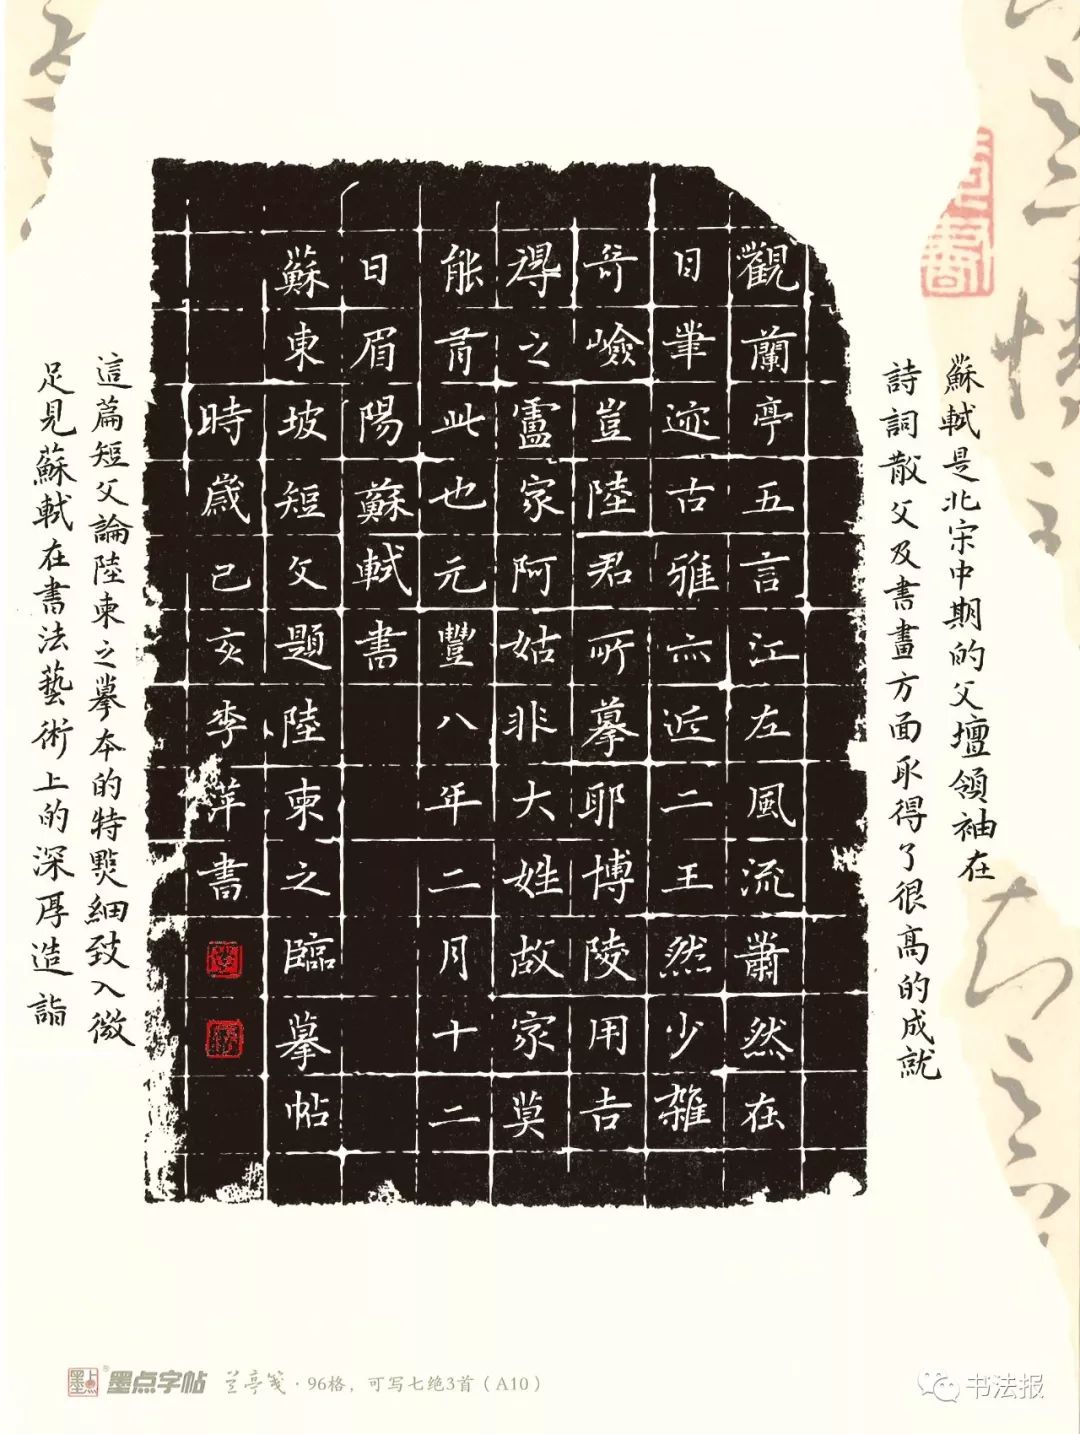 蘇軾是北宋中期的文壇領袖在
詩詞散文及書畫方面取得了很高的成就
觀蘭亭五言江左風流蕭然在
目筆迹古雅亦近二王然少雜
奇嶮豈陸君所摹耶博陵用吉
得之盧家阿姑非大姓故家莫
能有此也元豐八年二月十二
日眉陽蘇軾書
蘇東坡短文題陸柬之臨摹帖
時歲己亥李萍書
這篇短文論陸柬之摹本的特點細致入微
足見蘇軾在書法藝術上的深厚造詣
墨点字帖 兰亭笺·96格，可写七绝3首（A10）
书法报